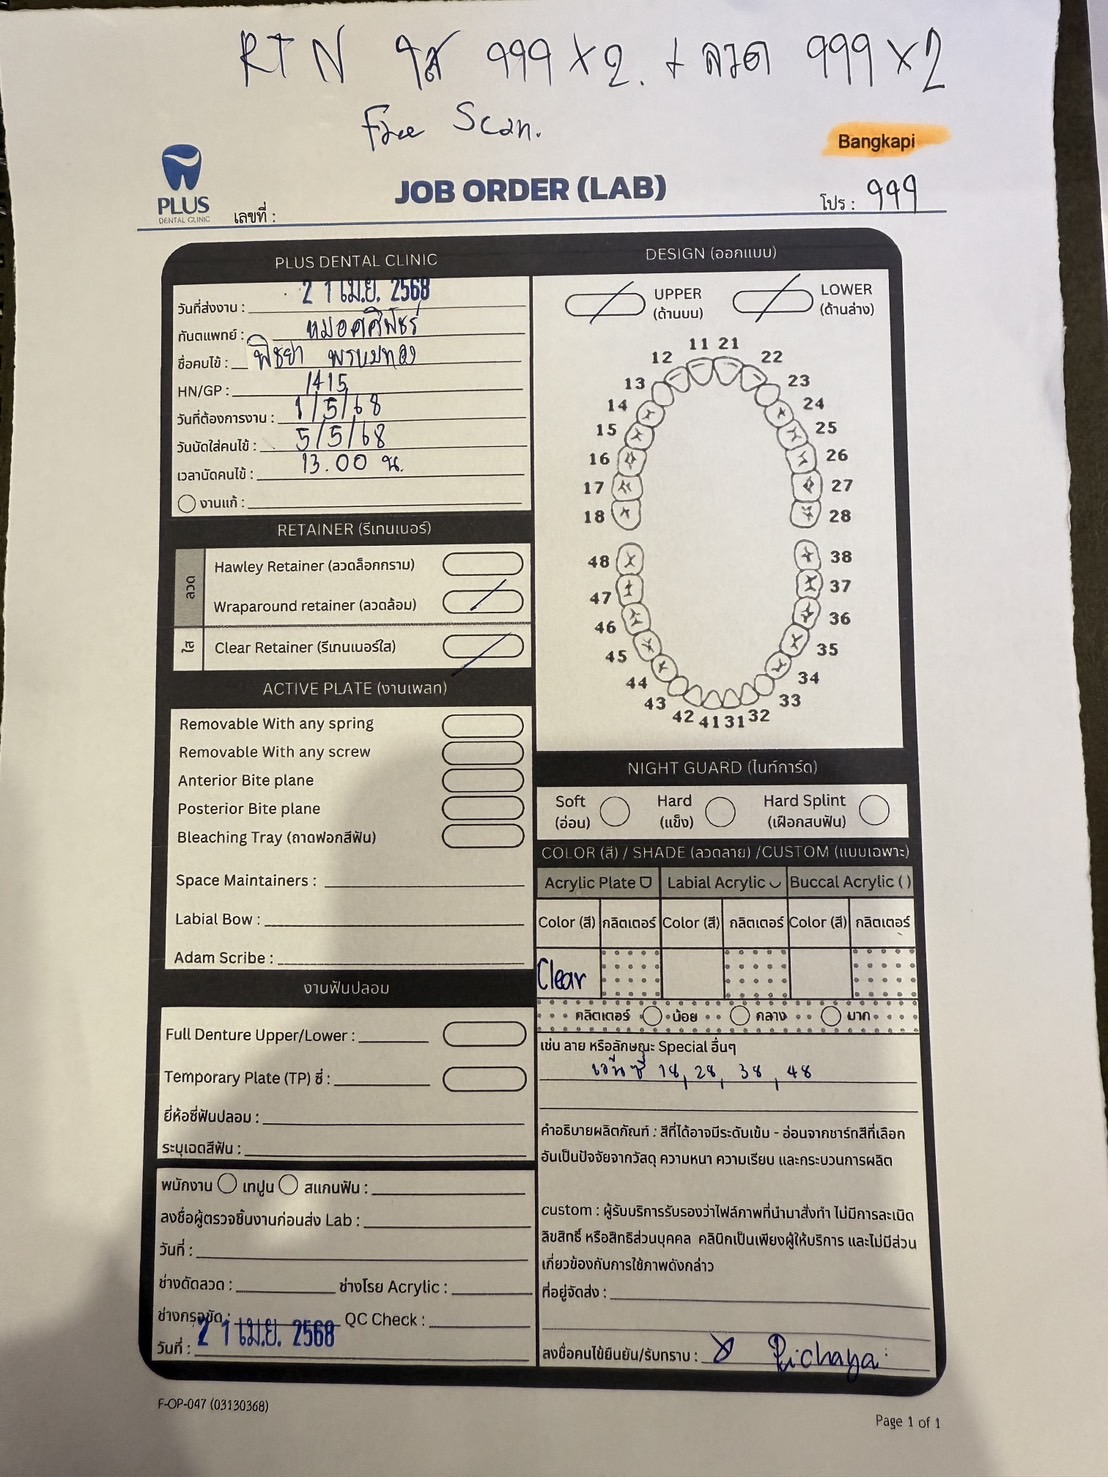 RTN ใส 999 x 2. + ลวด 999 x 2
Free Scan.
Bangkapi
PLUS
DENTAL CLINIC
เลขที่ :
JOB ORDER (LAB)
โปร : 999
PLUS DENTAL CLINIC
วันที่ส่งงาน : 21 เม.ย. 2568
ทันตแพทย์ :
ชื่อคนไข้ : พิชญา
HN/GP : 1415
วันที่ต้องการงาน : 1/5/68
วันนัดใส่คนไข้ : 5/5/68
เวลานัดคนไข้ : 13.00 น.
งานแก้ :
RETAINER (รีเทนเนอร์)
ลวด
Hawley Retainer (ลวดล็อกกราม)
Wraparound retainer (ลวดล้อม)
ใส
Clear Retainer (รีเทนเนอร์ใส)
ACTIVE PLATE (งานเพลท)
Removable With any spring
Removable With any screw
Anterior Bite plane
Posterior Bite plane
Bleaching Tray (ถาดฟอกสีฟัน)
Space Maintainers :
Labial Bow :
Adam Scribe :
งานฟันปลอม
Full Denture Upper/Lower :
Temporary Plate (TP) ซี่ :
ยี่ห้อซี่ฟันปลอม :
ระบุเฉดสีฟัน :
พนักงาน เทปูน สแกนฟัน :
ลงชื่อผู้ตรวจชิ้นงานก่อนส่ง Lab :
วันที่ :
ช่างดัดลวด : ช่างโรย Acrylic :
ช่างกรอขัด : QC Check :
วันที่ : 21 เม.ย. 2568
DESIGN (ออกแบบ)
UPPER
(ด้านบน)
LOWER
(ด้านล่าง)
11 21
12 22
13 23
14 24
15 25
16 26
17 27
18 28
48 38
47 37
46 36
45 35
44 34
43 33
42 41 31 32
NIGHT GUARD (ไนท์การ์ด)
Soft
(อ่อน)
Hard
(แข็ง)
Hard Splint
(เฝือกสบฟัน)
COLOR (สี) / SHADE (ลวดลาย) /CUSTOM (แบบเฉพาะ)
Acrylic Plate Labial Acrylic Buccal Acrylic ( )
Color (สี) กลิตเตอร์ Color (สี) กลิตเตอร์ Color (สี) กลิตเตอร์
Clear
กลิตเตอร์ น้อย กลาง มาก
เช่น ลาย หรือลักษณะ Special อื่นๆ
เว้นซี่ 18, 28, 38, 48
คำอธิบายผลิตภัณฑ์ : สีที่ได้อาจมีระดับเข้ม - อ่อนจากชาร์ทสีที่เลือก
อันเป็นปัจจัยจากวัสดุ ความหนา ความเรียบ และกระบวนการผลิต
custom : ผู้รับบริการรับรองว่าไฟล์ภาพที่นำมาสั่งทำ ไม่มีการละเมิด
ลิขสิทธิ์ หรือสิทธิส่วนบุคคล คลินิกเป็นเพียงผู้ให้บริการ และไม่มีส่วน
เกี่ยวข้องกับการใช้ภาพดังกล่าว
ที่อยู่จัดส่ง :
ลงชื่อคนไข้ยืนยัน/รับทราบ : x Pichaya
F-OP-047 (03130368)
Page 1 of 1